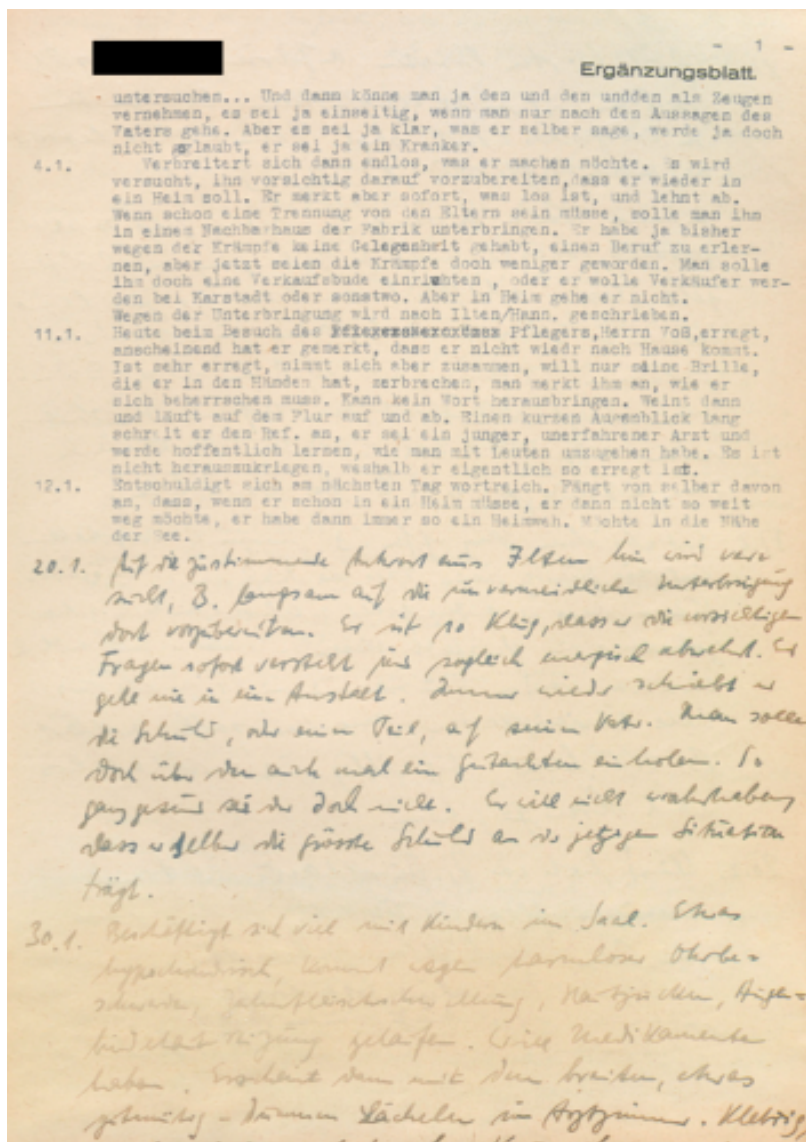 - 1 -
Ergänzungsblatt.
untersuchen... Und dann könne man ja den und den undden als Zeugen
vernehmen, es sei ja einseitig, wenn man nur nach den Aussagen des
Vaters gehe. Aber es sei ja klar, was er selber sage, werde ja doch
nicht gglaubt, er sei ja ein Kranker.
4.1. Verbreitert sich dann endlos, was er machen möchte. Es wird
versucht, ihn vorsichtig darauf vorzubereiten,dass er wieder in
ein Heim soll. Er merkt aber sofort, was los ist, und lehnt ab.
Wenn schon eine Trennung von den Eltern sein müsse, solle man ihn
in einem Nachbarhaus der Fabrik unterbringen. Er habe ja bisher
wegen der Krämpfe keine Gelegenheit gehabt, einen Beruf zu erler-
nen, aber jetzt seien die Krämpfe doch weniger geworden. Man solle
ihm doch eine Verkaufsbude einrichten , oder er wolle Verkäufer wer-
den bei Karstadt oder sonstwo. Aber in Heim gehe er nicht.
Wegen der Unterbringung wird nach Ilten/Hann. geschrieben.
11.1. Heute beim Besuch des Pflegers,Herrn Voß,erregt,
anscheinend hat er gemerkt, dass er nicht wiedr nach Hause kommt.
Ist sehr erregt, nimmt sich aber zusammen, will nur seine Brille,
die er in den Händen hat, zerbrechen, man merkt ihm an, wie er
sich beherrschen muss. Kann kein Wort herausbringen. Weint dann
und läuft auf dem Flur auf und ab. Einen kurzen Augenblick lang
schreit er den Ref. an, er sei ein junger, unerfahrener Arzt und
werde hoffentlich lernen, wie man mit Leuten umzugehen habe. Es ist
nicht herauszukriegen, weshalb er eigentlich so erregt ist.
12.1. Entschuldigt sich am nächsten Tag wortreich. Fängt von selber davon
an, dass, wenn er schon in ein Heim müsse, er dann nicht so weit
weg möchte, er habe dann immer so ein Heimweh. Möchte in die Nähe
der See.
20.1. Auf die zustimmende Antwort aus Ilten hin wird ver-
sucht, B. langsam auf die unvermeidliche Unterbringung
dort vorzubereiten. Er ist so klug, dass er die vorsichtigen
Fragen sofort versteht und sogleich energisch abwehrt. Er
gehe nie in eine Anstalt. Immer wieder schiebt er
die Schuld, oder einen Teil, auf seinen Vater. Man solle
doch über den auch mal ein Gutachten einholen. So
ganz gesund sei der doch nicht. Er will nicht wahrhaben,
dass er selber die grösste Schuld an der jetzigen Situation
trägt.
30.1. Beschäftigt sich viel mit Kindern im Saal. Etwas
hypochondrisch, kommt wegen harmloser Ohrbe-
schwerden, Zahnfleischschwellung, Hautjucken, Augen-
bindehautreizung gelaufen. Will Medikamente
haben. Erscheint dann mit dem breiten, etwas
gutmütig-dummen Lächeln im Arztzimmer. Klebrig,